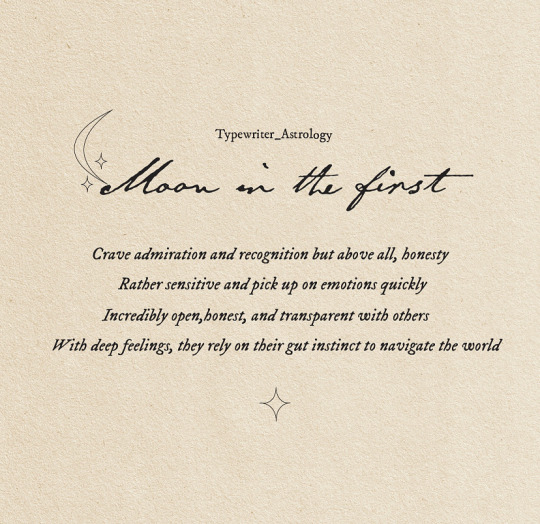 Typewriter_Astrology
Moon in the first
Crave admiration and recognition but above all, honesty
Rather sensitive and pick up on emotions quickly
Incredibly open,honest, and transparent with others
With deep feelings, they rely on their gut instinct to navigate the world